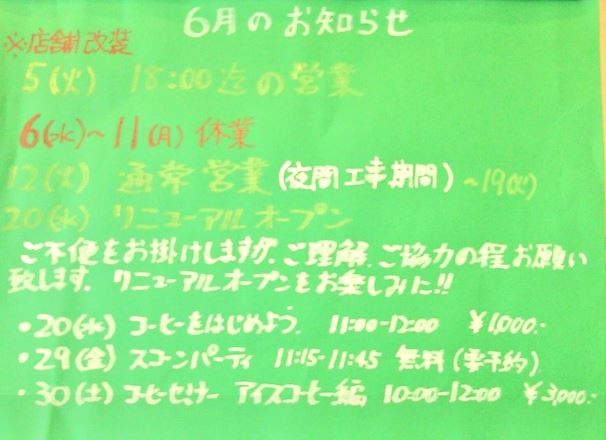 6月のお知らせ
※店舗改装
5(火) 18:00迄の営業
6(水)~11(月) 休業
12(火) 通常営業(夜間工事期間)~19(火)
20(水) リニューアルオープン
ご不便をお掛けしますが、ご理解、ご協力の程お願い
致します。リニューアルオープンをお楽しみに!!
・20(水) コーヒーをはじめよう 11:00-12:00 ¥1,000.-
・29(金) スコーンパーティ 11:15-11:45 無料(要予約)
・30(土) コーヒーセミナー アイスコーヒー編 10:00-12:00 ¥3,000.-